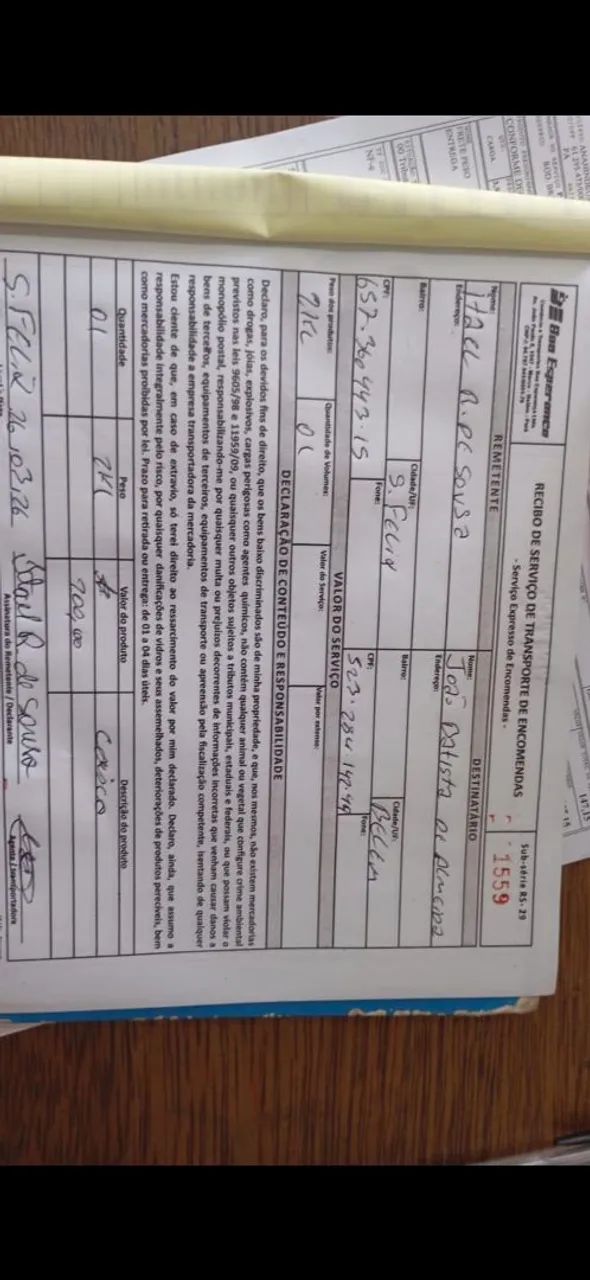 Boa Esperança
RECIBO DE SERVIÇO DE TRANSPORTE DE ENCOMENDAS
- Serviço Expresso de Encomendas -
Sub-série RS- 29
1559
REMETENTE
DESTINATÁRIO
Nome:
Sousa
Nome:
João Batista de Almeida
Endereço:
Endereço:
Bairro:
Cidade/UF:
S. Felix
Bairro:
Cidade/UF:
BELEM
CPF:
657.360.443.15
Fone:
CPF:
Fone:
VALOR DO SERVIÇO
Peso dos produtos:
2KL
Quantidade de Volumes:
01
Valor do Serviço:
Valor por extenso:
DECLARAÇÃO DE CONTEÚDO E RESPONSABILIDADE
Declaro, para os devidos fins de direito, que os bens baixo discriminados são de minha propriedade, e que, nos mesmos, não existem mercadorias
como drogas, jóias, explosivos, cargas perigosas como agentes químicos, não contém qualquer animal ou vegetal que configure crime ambiental
previstos nas leis 9605/98 e 11959/09, ou quaisquer outros objetos sujeitos a tributos municipais, estaduais e federais, ou que possam violar o
monopólio postal, responsabilizando-me por quaisquer multa ou prejuízos decorrentes de informações incorretas que venham causar danos a
bens de terceiros, equipamentos de terceiros, equipamentos de transporte ou apreensão pela fiscalização competente, isentando de qualquer
responsabilidade a empresa transportadora da mercadoria.
Estou ciente de que, em caso de extravio, só terei direito ao ressarcimento do valor por mim declarado. Declaro, ainda, que assumo a
responsabilidade integralmente pelo risco, por quaisquer danificações de vidros e seus assemelhados, deteriorações de produtos perecíveis, bem
como mercadorias proibidas por lei. Prazo para retirada ou entrega: de 01 a 04 dias úteis.
Quantidade
Peso
Valor do produto
Descrição do produto
01
2KL
200,00
S. FELIX 26/03/26
Itael R. de Sousa
Assinatura do Remetente / Declarante
Agente / transportadora